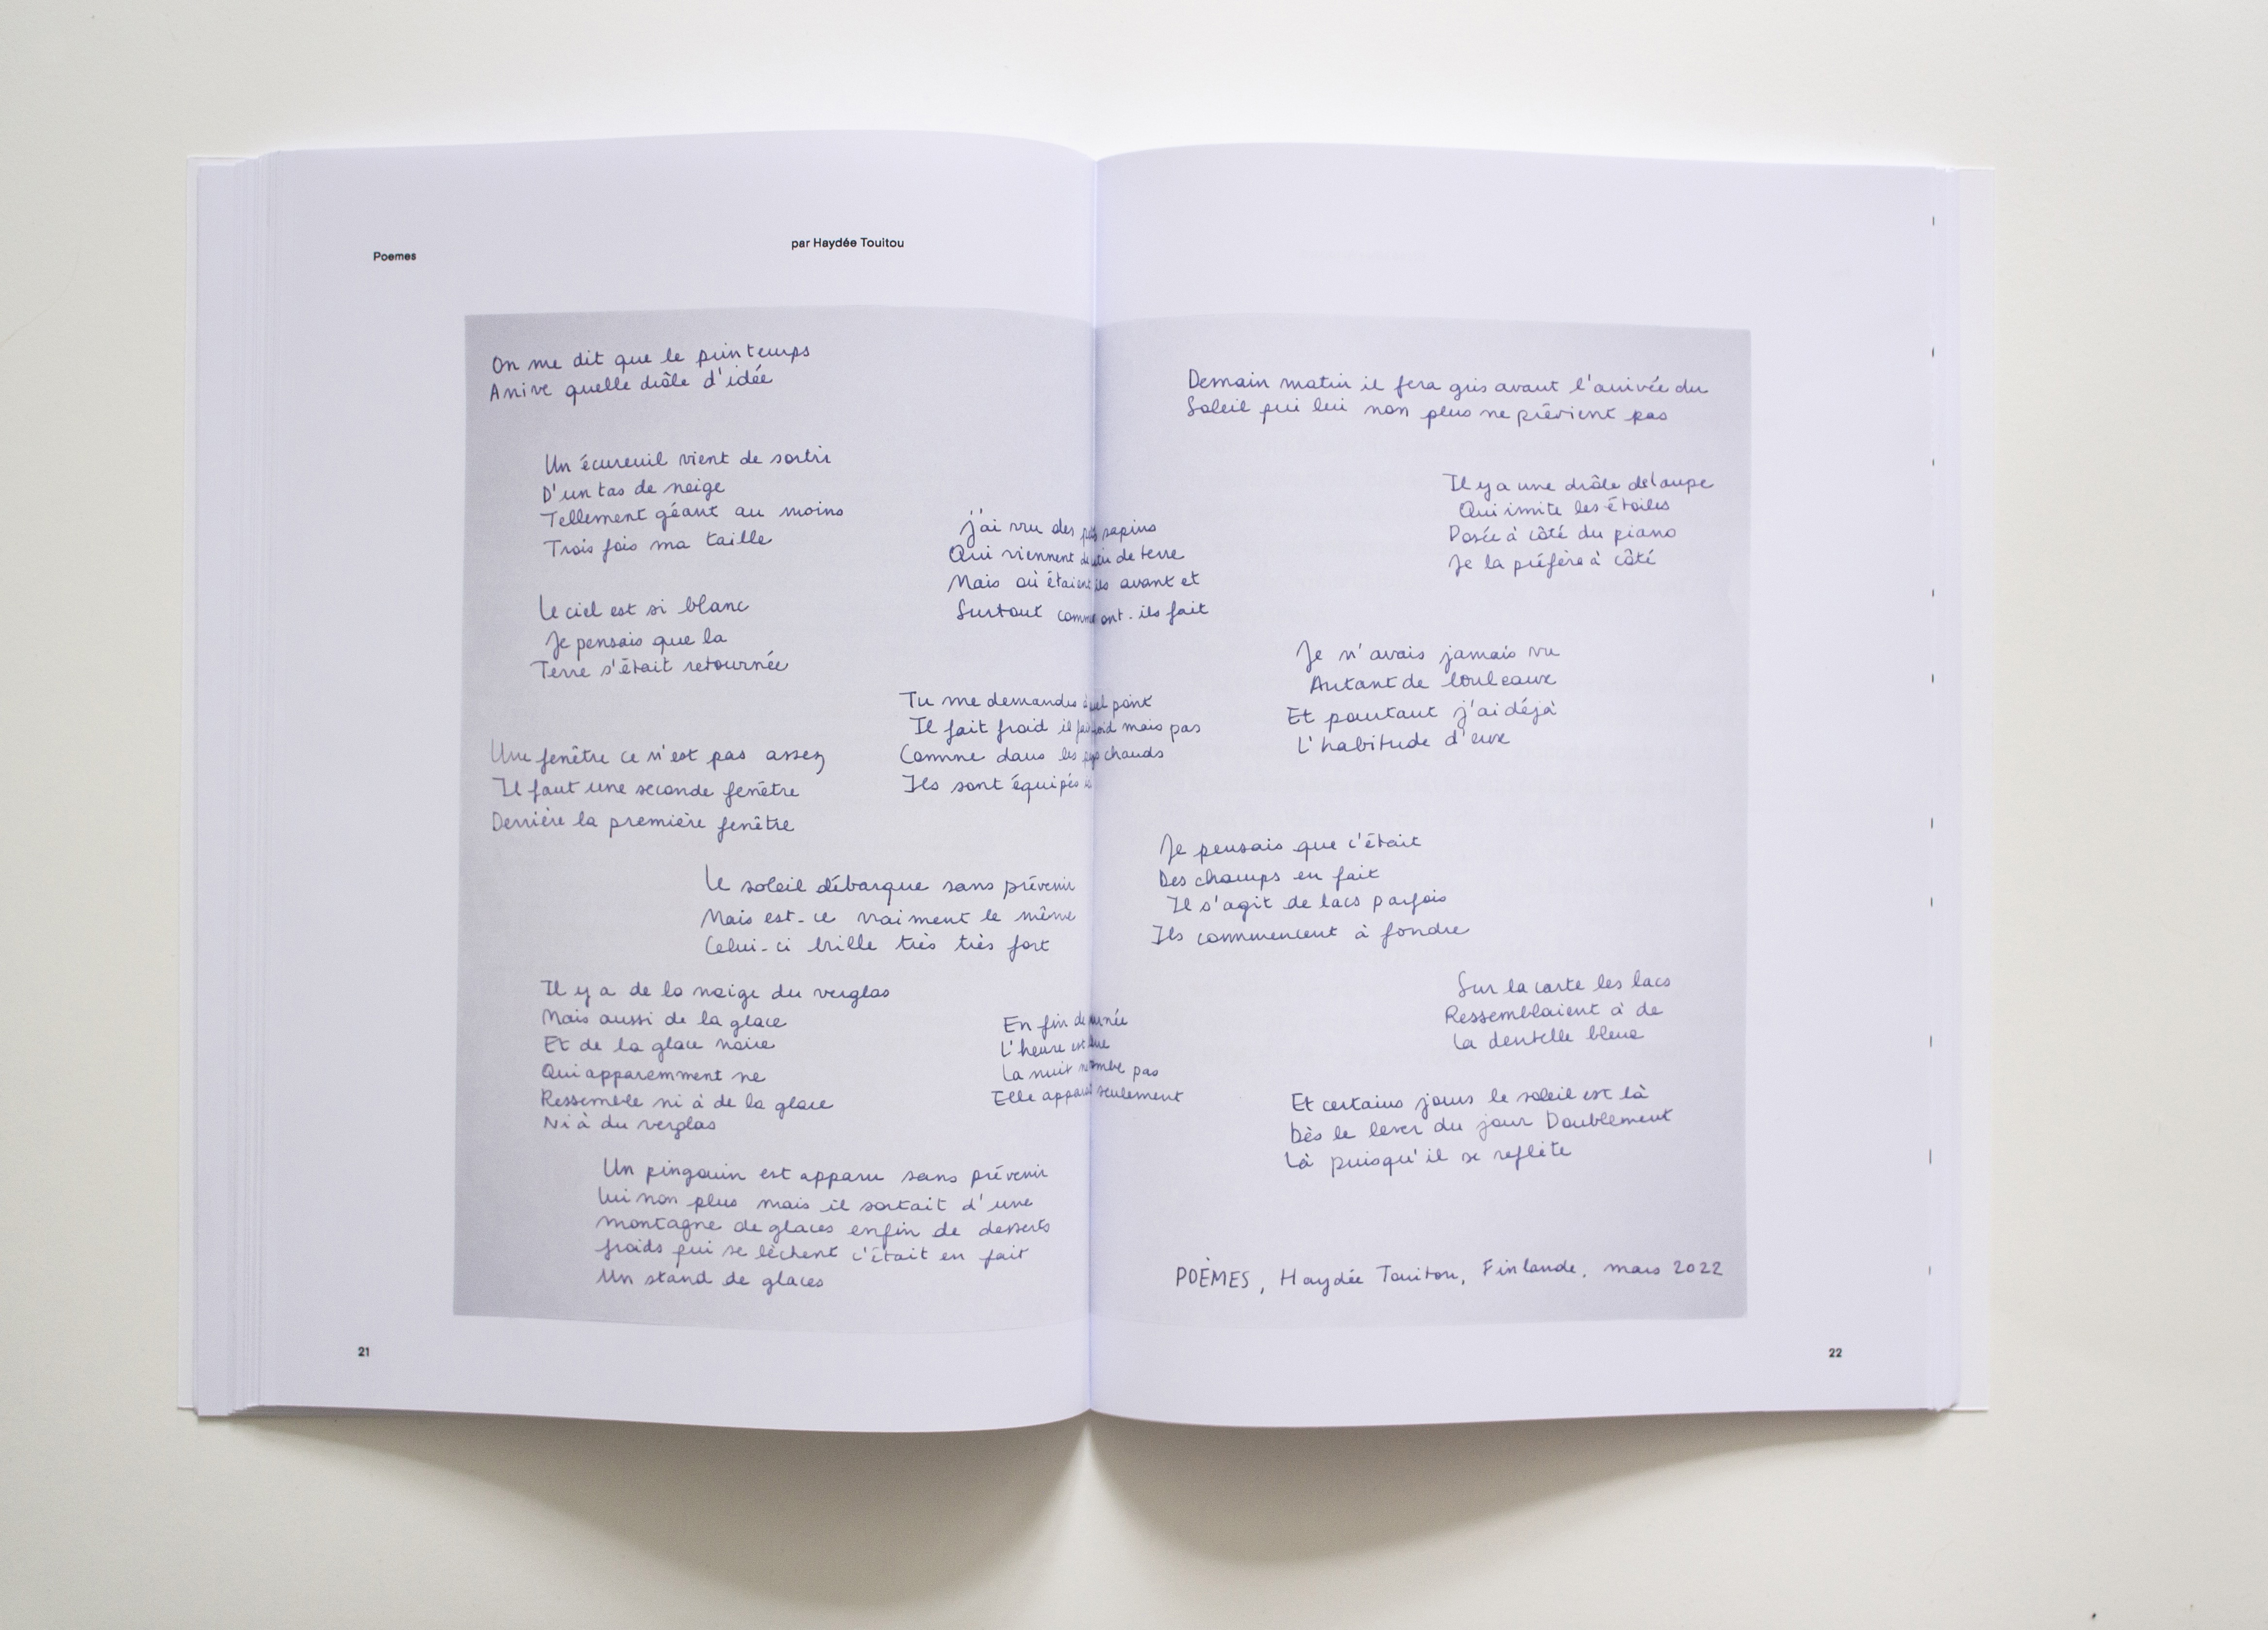 Poemes
par Haydée Touitou
On me dit que le printemps
Arrive quelle drôle d'idée
Un écureuil vient de sortir
D'un tas de neige
Tellement géant au moins
Trois fois ma taille
Le ciel est si blanc
Je pensais que la
Terre s'était retournée
Une fenêtre ce n'est pas assez
Il faut une seconde fenêtre
Derrière la première fenêtre
Le soleil débarque sans prévenir
Mais est-ce vraiment le même
Celui-ci brille très très fort
Il y a de la neige du verglas
Mais aussi de la glace
Et de la glace noire
Qui apparemment ne
Ressemble ni à de la glace
Ni à du verglas
Un pingouin est apparu sans prévenir
Lui non plus mais il sortait d'une
montagne de glaces enfin de desserts
froids qui se lèchent c'était en fait
Un stand de glaces
J'ai vu des sapins
Qui viennent de terre
Mais où étaient ils avant et
Surtout comment ont-ils fait
Tu me demandes à quel point
Il fait froid il fait froid mais pas
Comme dans les pays chauds
Ils sont équipés
En fin de journée
L'heure est
La nuit ne tombe pas
Elle apparaît seulement
Demain matin il fera gris avant l'arrivée du
Soleil qui lui non plus ne prévient pas
Il y a une drôle de loupe
Qui imite les étoiles
Posée à côté du piano
Je la préfère à côté
Je n'avais jamais vu
Autant de bouleaux
Et pourtant j'ai déjà
L'habitude d'eux
Je pensais que c'était
Des champs en fait
Il s'agit de lacs parfois
Ils commencent à fondre
Sur la carte les lacs
Ressemblaient à de
La dentelle bleue
Et certains jours le soleil est là
Dès le lever du jour Doublement
Là puisqu'il se reflète
POÈMES, Haydée Touitou, Finlande, mars 2022
21
22